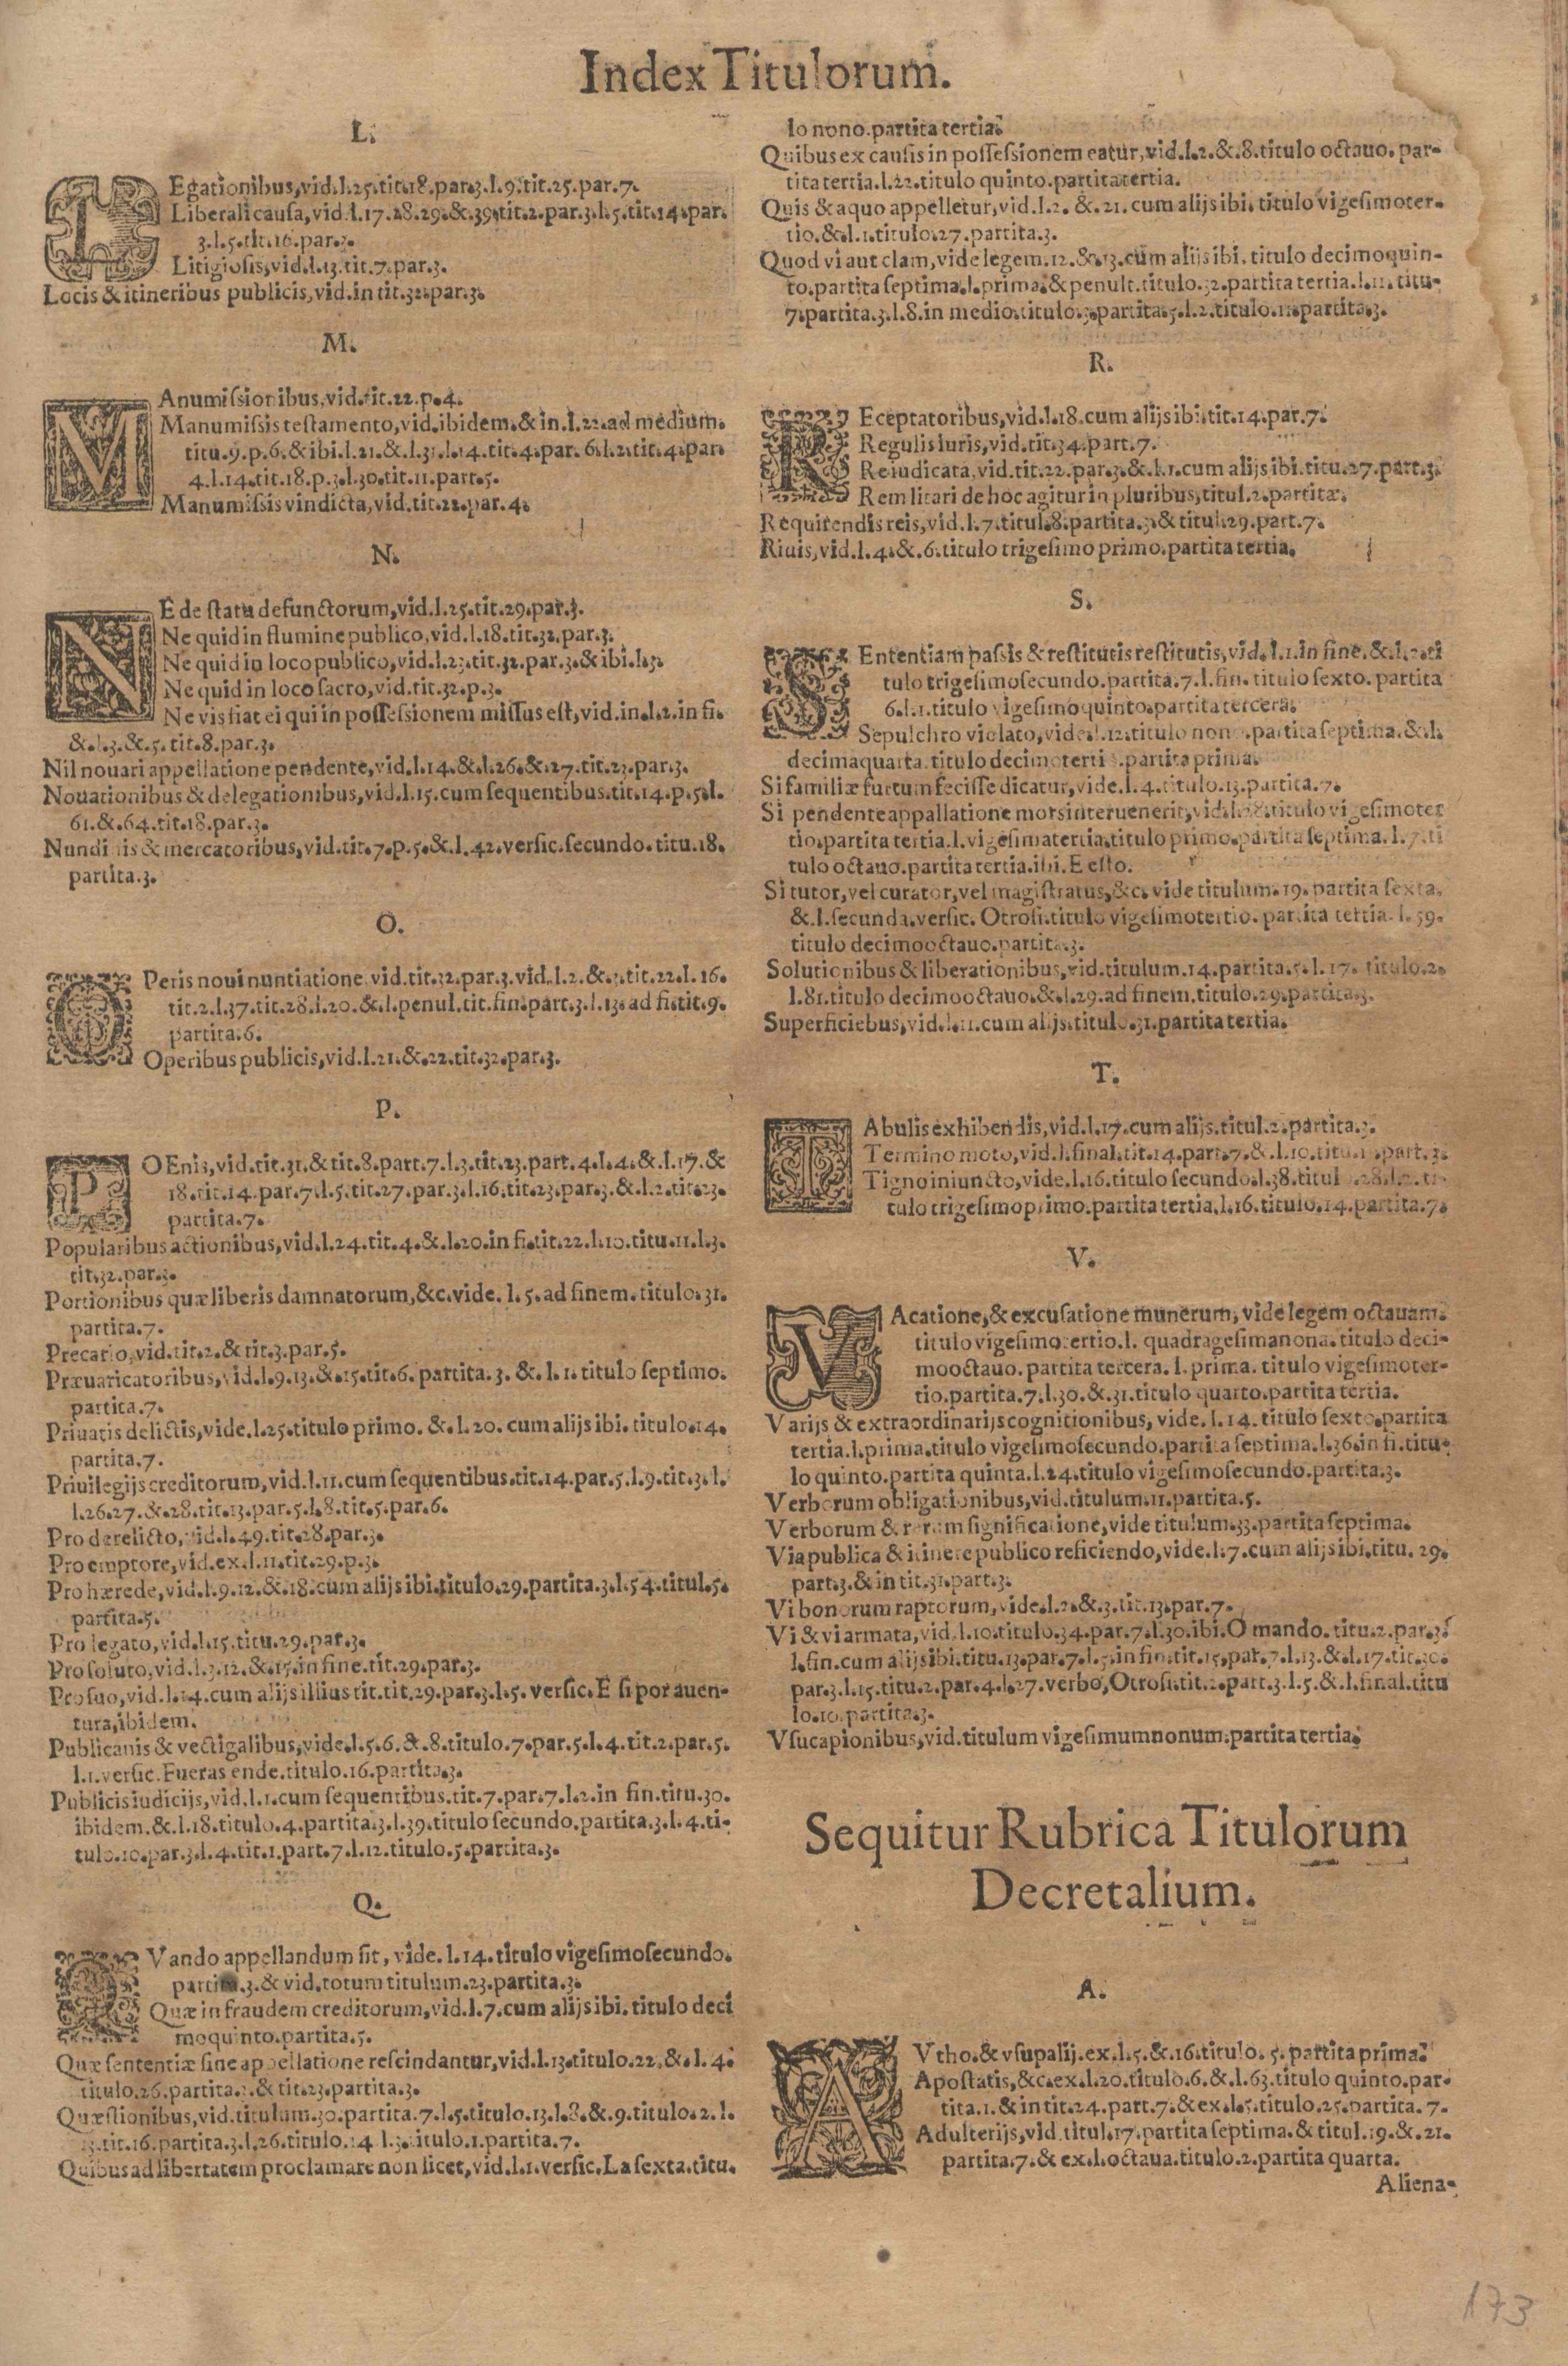 Index Titulorum.
L.
LEgationibus,vid.l.25.tit.18.par.3.l.9.tit.25.par.7.
Liberali causa,vid.l.17.28.29.&.39.tit.2.par.3.l.5.tit.14.par.
3.l.5.tit.16.par.3.
Litigiosis,vid.l.13.tit.7.par.3.
Locis & itineribus publicis,vid.in tit.32.par.3.
M.
MAnumissionibus,vid.tit.22.p.4.
Manumissis testamento,vid.ibidem.& in.l.22.ad medium.
titu.9.p.6.&ibi.l.21.&.l.31.l.14.tit.4.par. 6.l.2.tit.4.par.
4.l.14.tit.18.p.3.l.30.tit.11.part.5.
Manumissis vindicta,vid.tit.22.par.4.
N.
NE de statu defunctorum,vid.l.25.tit.29.par.3.
Ne quid in flumine publico,vid.l.18.tit.32.par.3.
Ne quid in loco publico,vid.l.23.tit.32.par.3.&ibi.l.3.
Ne quid in loco sacro,vid.tit.32.p.3.
Ne vis fiat ei qui in possessionem missus est,vid.in.l.2.in fi.
&.l.3.&.5.tit.8.par.3.
Nil nouari appellatione pendente,vid.l.14.&.l.26.&.27.tit.23.par.3.
Nouationibus & delegationibus,vid.l.15.cum sequentibus.tit.14.p.5.l.
61.&.64.tit.18.par.3.
Nundi iis & mercatoribus,vid.tit.7.p.5.&.l.42.versic.secundo.titu.18.
partita.3.
O.
OPeris noui nuntiatione vid.tit.32.par.3.vid.l.2.&.3.tit.22.l.16.
tit.2.l.37.tit.28.l.20.&.l.penul.tit.fin.part.3.l.13.ad fi.tit.9.
partita.6.
Operibus publicis,vid.l.21.&.22.tit.32.par.3.
P.
POEnis,vid.tit.31.&tit.8.part.7.l.3.tit.23.part.4.l.4.&.l.17.&
18.tit.14.par.7.l.5.tit.27.par.3.l.16.tit.23.par.3.&.l.2.tit.23.
partita.7.
Popularibus actionibus,vid.l.24.tit.4.&.l.20.in fi.tit.22.l.10.titu.11.l.3.
tit.32.par.3.
Portionibus quæ liberis damnatorum,&c.vide. l.5.ad finem.titulo.31.
partita.7.
Precario,vid.tit.2.& tit.3.par.5.
Præuaricatoribus,vid.l.9.13.&.15.tit.6. partita.3. &.l. 1. titulo septimo.
partita.7.
Priuatis delictis,vide.l.25.titulo primo. &.l.20. cum alijs ibi.titulo.14.
partita.7.
Priuilegijs creditorum,vid.l.11.cum sequentibus.tit.14.par.5.l.9.tit.3.l.
l.26.27.&.28.tit.13.par.5.l.8.tit.5.par.6.
Pro derelicto,vid.l.49.tit.28.par.3.
Pro emptore,vid.ex.l.11.tit.29.p.3.
Pro hærede,vid.l.9.12.&.18.cum alijs ibi.titulo.29.partita.3.l.54.titul.5.
partita.5.
Pro legato,vid.l.15.titu.29.par.3.
Pro soluto,vid.l.3.12.&.15.in fine.tit.29.par.3.
Pro suo,vid.l.14.cum alijs illius tit.tit.29.par.3.l.5. versic.E si por auen-
tura,ibidem.
Publicanis & vectigalibus,vide.l.5.6.&.8.titulo.7.par.5.l.4.tit.2.par.5.
l.1.versic.Fueras ende.titulo.16.partita.3.
Publicis iudicijs,vid.l.1.cum sequentibus.tit.7.par.7.l.2.in fin.titu.30.
ibidem.&.l.18.titulo.4.partita.3.l.39.titulo secundo.partita.3.l.4.ti-
tulo.10.par.3.l.4.tit.1.part.7.l.12.titulo.5.partita.3.
Q.
QVando appellandum sit, vide.l.14.titulo vigesimosecundo.
partita.3.& vid.totum titulum.23.partita.3.
Quæ in fraudem creditorum,vid.l.7.cum alijs ibi.titulo deci
moquinto.partita.5.
Quæ sententiæ sine appellatione rescindantur,vid.l.13.titulo.22.&.l.4.
titulo.26.partita.3.& tit.23.partita.3.
Quæstionibus,vid.titulum.30.partita.7.l.5.titulo.13.l.8.&.9.titulo.2.l.
13.tit.16.partita.3.l.26.titulo.14 l.3.titulo.1.partita.7.
Quibus ad libertatem proclamare non licet,vid.l.1.versic.La sexta.titu.
lo nono.partita tertia.
Quibus ex causis in possessionem eatur,vid.l.2.&.8.titulo octauo.par-
tita tertia.l.22.titulo quinto.partita tertia.
Quis & a quo appelletur,vid.l.2. &.21. cum alijs ibi.titulo vigesimoter-
tio.&.l.1.titulo.27.partita.3.
Quod vi aut clam,vide legem.12.&.13.cum alijs ibi.titulo decimoquin-
to.partita septima.l.prima.& penult.titulo.32.partita tertia.l.11.titu-
7.partita.3.l.8.in medio.titulo.3.partita.5.l.2.titulo.11.partita.3.
R.
REceptatoribus,vid.l.18.cum alijs ibi.tit.14.par.7.
Regulis iuris,vid.tit.34.part.7.
Re iudicata,vid.tit.22.par.3.&.l.1.cum alijs ibi.titu.27.part.3.
Rem litari de hoc agitur in pluribus,titul.2.partitæ.
Requirendis reis,vid.l.7.titul.8.partita.3.& titul.29.part.7.
Riuis,vid.l.4.&.6.titulo trigesimo primo.partita tertia.
S.
SEntentiam passis & restitutis restitutis,vid.l.1.in fine.&.l.2.ti
tulo trigesimosecundo.partita.7.l.fin.titulo sexto. partita
6.l.1.titulo vigesimoquinto.partita tercera.
Sepulchro violato,vide.l.12.titulo nono.partita septima.&.l.
decimaquarta.titulo decimoterti .partita prima.
Si familiæ furtum fecisse dicatur,vide.l.4.titulo.13.partita.7.
Si pendente appallatione mors interuenerit,vid. titulo vigesimoter
tio.partita tertia.l.vigesimatertia.titulo primo.partita septima.l.7.ti
tulo octauo.partita tertia.ibi.E esto.
Si tutor,vel curator,vel magistratus,&c.vide titulum.19.partita sexta.
&.l.secunda.versic. Otrosi.titulo vigesimotertio.partita tertia.l.59.
titulo decimooctauo.partita.3.
Solutionibus & liberationibus,vid.titulum.14.partita.5.l.17. titulo.2.
l.81.titulo decimooctauo.&.l.29.ad finem.titulo.29.partita.3.
Superficiebus,vid.l.11.cum alijs.titulo.31.partita tertia.
T.
TAbulis exhibendis,vid.l.17.cum alijs.titul.2.partita.3.
Termino moto,vid.l.final.tit.14.part.7.&.l.10.titu. .part.3.
Tigno iniuncto,vide.l.16.titulo secundo.l.38.titul .28.l.2.ti-
tulo trigesimoprimo.partita tertia.l.16.titulo.14.partita.7.
V.
VAcatione,& excusatione munerum, vide legem octauam.
titulo vigesimotertio.l. quadragesimanona.titulo deci-
mooctauo.partita tercera. l.prima. titulo vigesimoter-
tio.partita.7.l.30.&.31.titulo quarto.partita tertia.
Varijs & extraordinarijs cognitionibus, vide.l.14.titulo sexto.partita
tertia.l.prima.titulo vigesimosecundo.partita septima.l.36.in fi.titu-
lo quinto.partita quinta.l.24.titulo vigesimosecundo.partita.3.
Verborum obligationibus,vid.titulum.11.partita.5.
Verborum & rerum significatione,vide titulum.33.partita septima.
Via publica & itinere publico reficiendo,vide.l.7.cum alijs ibi.titu. 29.
part.3.& in tit.31.part.3.
Vi bonorum raptorum,vide.l.2.&.3.tit.13.par.7.
Vi & vi armata,vid.l.10.titulo.34.par.7.l.30.ibi.O mando.titu.2.par.3.
l.fin.cum alijs ibi.titu.13.par.7.l.5.in fin.tit.15.par.7.l.13.&.l.17.tit.30.
par.3.l.15.titu.2.par.4.l.27.verbo,Otrosi.tit.2.part.3.l.5.&.l.final.titu
lo.10.partita.3.
Vsucapionibus,vid.titulum vigesimumnonum.partita tertia.
Sequitur Rubrica Titulorum
Decretalium.
A.
AVtho.& vsupalij.ex.l.5.&.16.titulo. 5. partita prima.
Apostatis,&c.ex.l.20.titulo.6.&.l.63.titulo quinto.par-
tita.1.& in tit.24.part.7.& ex.l.5.titulo.25.partita. 7.
Adulterijs,vid.titul.17.partita septima.& titul.19.&.21.
partita.7.& ex.l.octaua.titulo.2.partita quarta.
Aliena-
173